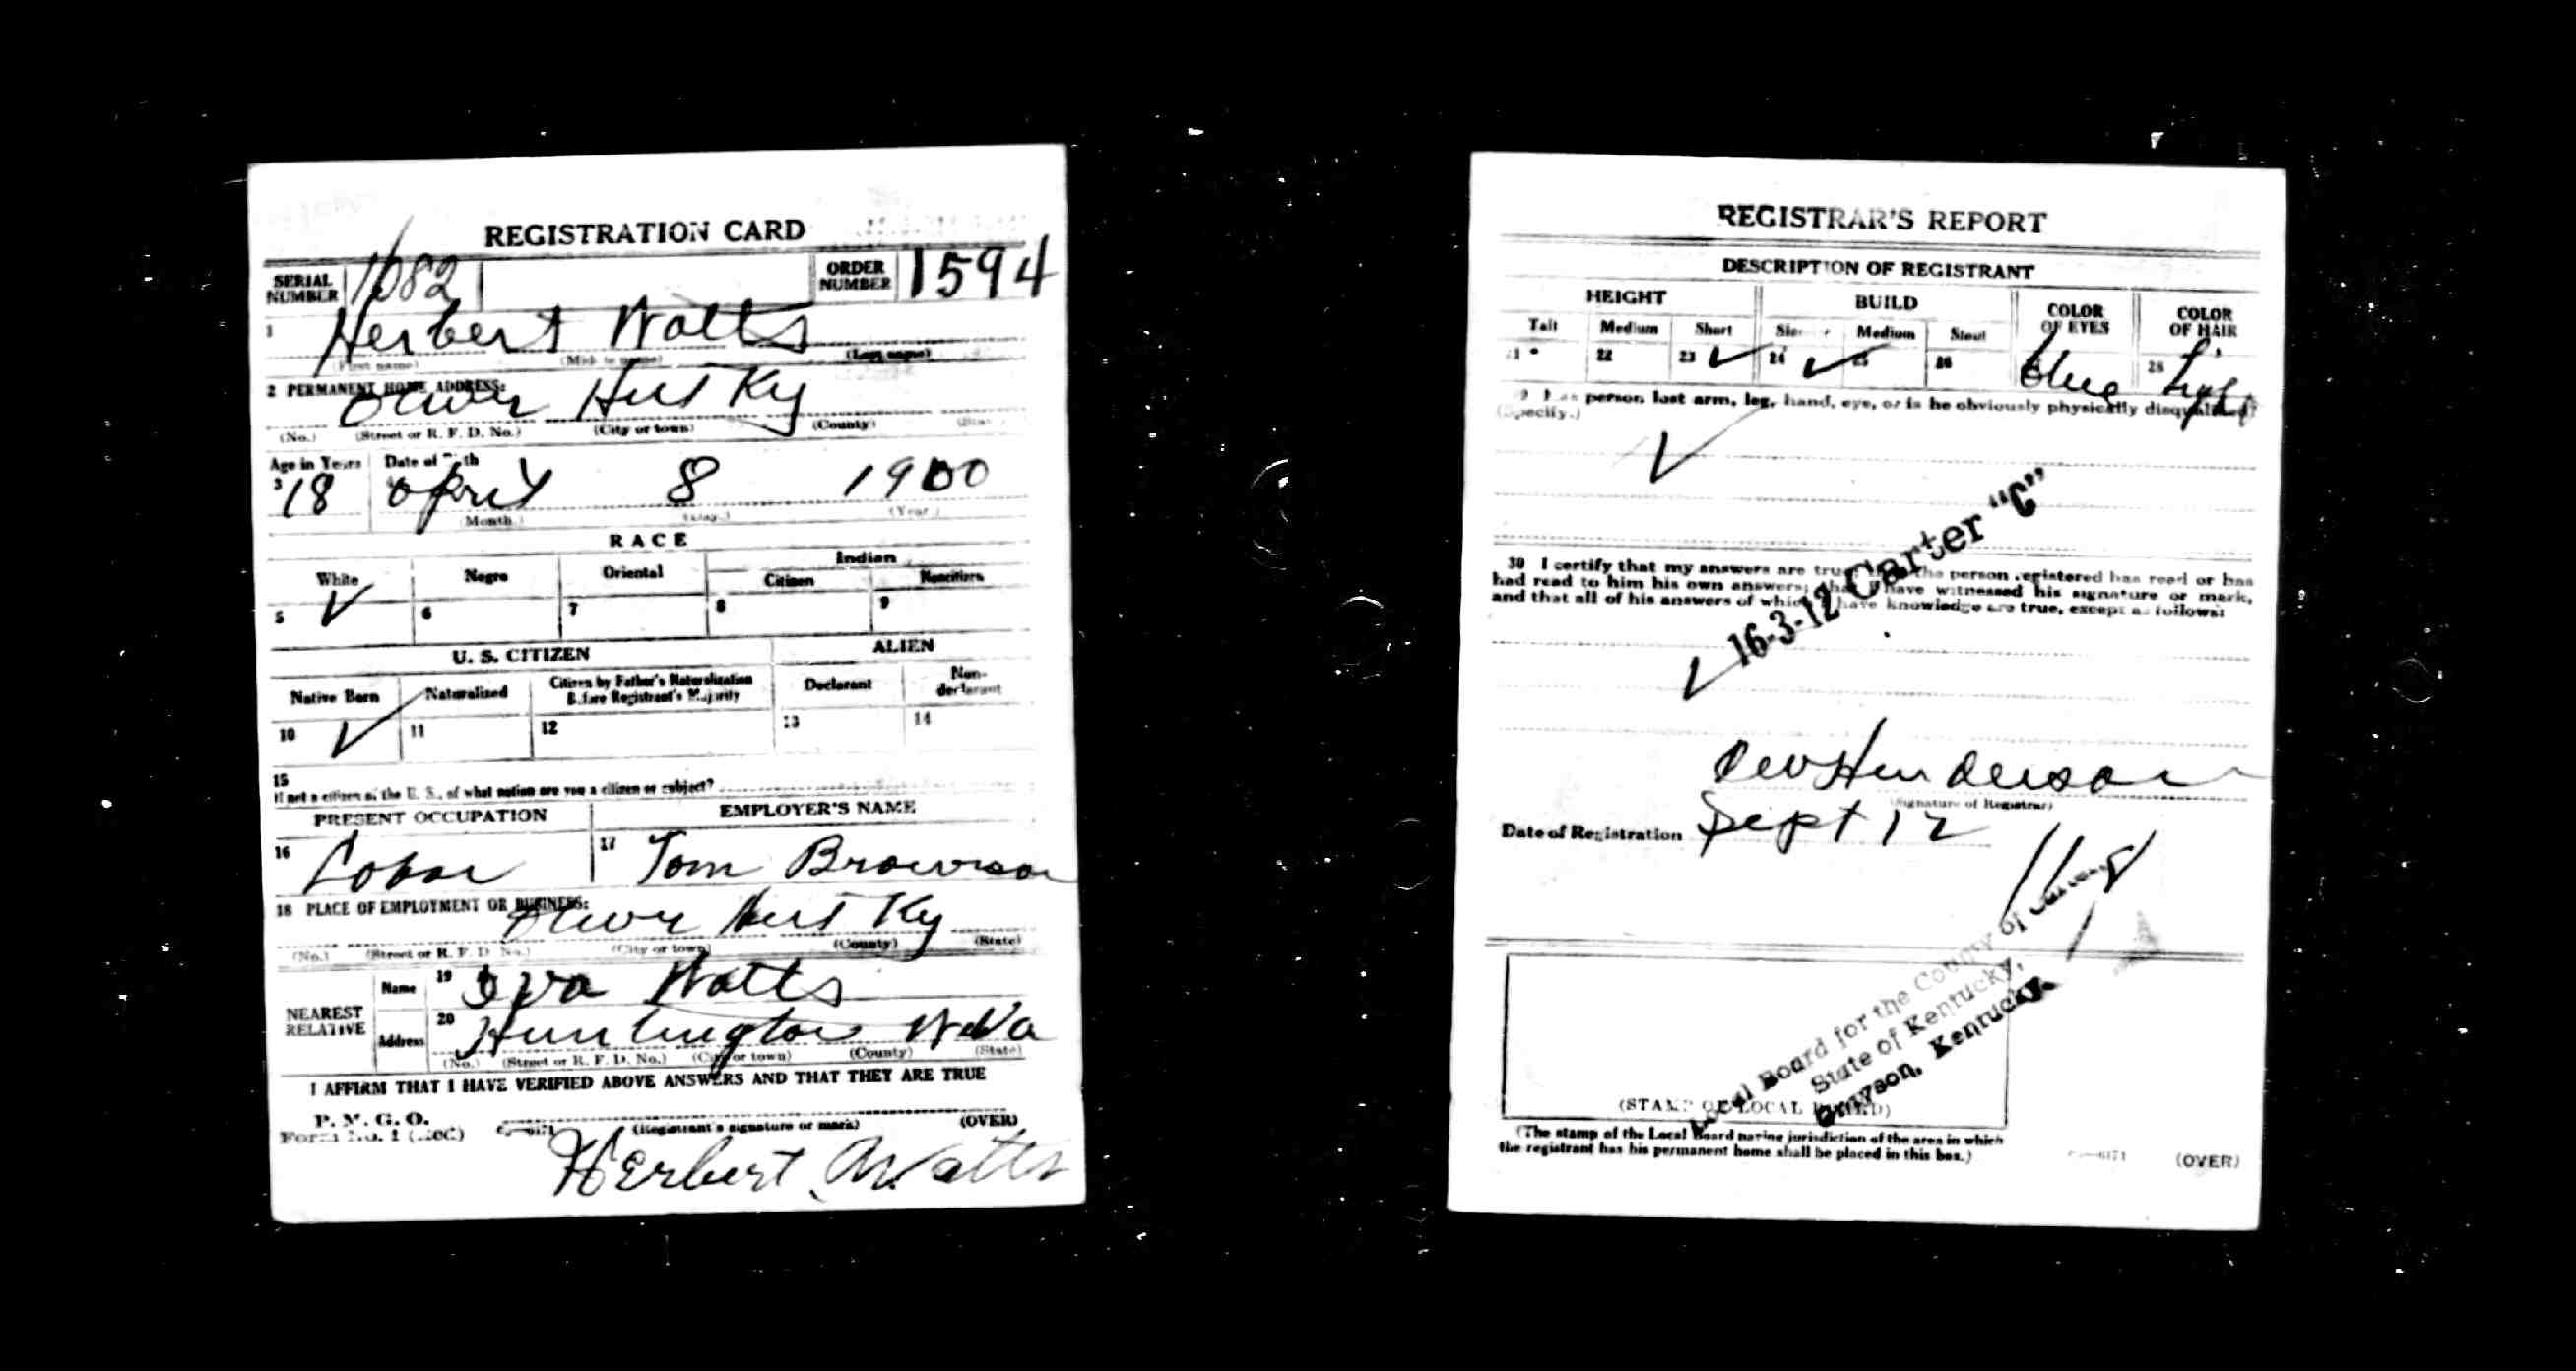 REGISTRATION CARD
SERIAL NUMBER 1082 ORDER NUMBER 1594
1 Herbert Watts
(First name) (Last name)
2 PERMANENT HOME ADDRESS:
Olive Hill Ky
(No.) (Street or R. F. D. No.) (City or town) (County)
Age in Years Date of Birth
3 18 April 8 1900
(Month.) (Day.) (Year.)
RACE
White Negro Oriental Indian
Citizen Noncitizen
5 ✓ 6 7 8 9
U. S. CITIZEN ALIEN
Native Born Naturalized Citizen by Father's Naturalization Before Registrant's Majority Declarant Non-declarant
10 ✓ 11 12 13 14
15
If not a citizen of the U. S., of what nation are you a citizen or subject?
PRESENT OCCUPATION EMPLOYER'S NAME
16 Labor 17 Tom
18 PLACE OF EMPLOYMENT OR BUSINESS:
Ky
(No.) (Street or R. F. D. No.) (City or town) (County) (State)
NEAREST RELATIVE
Name 19 Watts
Address 20 Huntington W Va
(No.) (Street or R. F. D. No.) (City or town) (County) (State)
I AFFIRM THAT I HAVE VERIFIED ABOVE ANSWERS AND THAT THEY ARE TRUE
P. M. G. O.
Form No. 1 (Red) (Registrant's signature or mark) (OVER)
Herbert Watts
REGISTRAR'S REPORT
DESCRIPTION OF REGISTRANT
HEIGHT BUILD COLOR OF EYES COLOR OF HAIR
Tall Medium Short Slender Medium Stout
21 22 23 ✓ 24 ✓ 25 26 blue 28 Light
29 Has person lost arm, leg, hand, eye, or is he obviously physically disqualified?
(Specify.)
✓
30 I certify that my answers are true; that the person registered has read or has
had read to him his own answers; that I have witnessed his signature or mark,
and that all of his answers of which I have knowledge are true, except as follows:
16-3-12 Carter "C"
✓
Henderson
(Signature of Registrar)
Date of Registration Sept 12
Local Board for the County of
State of Kentucky,
Grayson, Kentucky.
(STAMP OF LOCAL BOARD)
(The stamp of the Local Board having jurisdiction of the area in which
the registrant has his permanent home shall be placed in this box.)
(OVER)